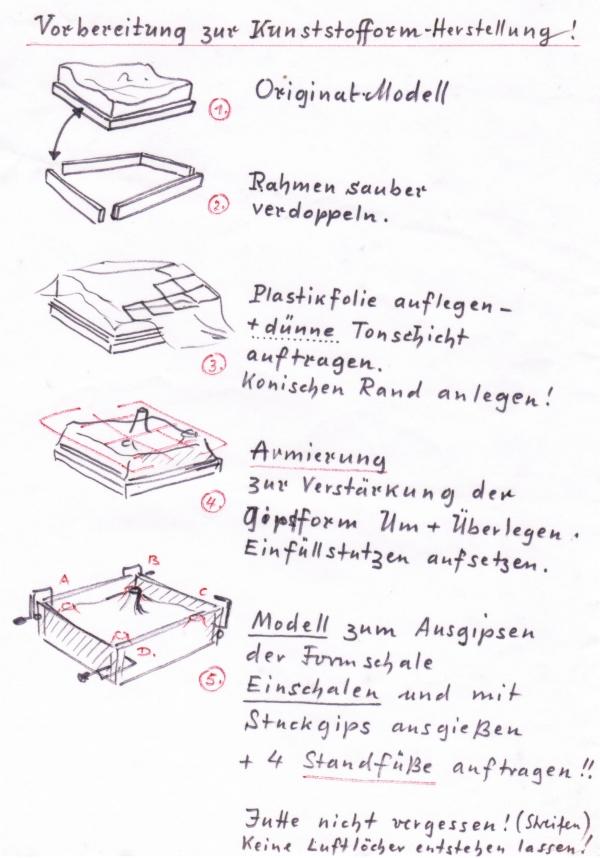 Vorbereitung zur Kunststofform-Herstellung!
1. Original-Modell
2. Rahmen sauber
verdoppeln.
3. Plastikfolie auflegen –
+ dünne Tonschicht
auftragen.
Konischen Rand anlegen!
4. Armierung
zur Verstärkung der
Gipsform Um + Überlegen.
Einfüllstutzen aufsetzen.
A B C D.
5. Modell zum Ausgipsen
der Formschale
Einschalen und mit
Stuckgips ausgießen
+ 4 Standfüße auftragen!!
Jutte nicht vergessen! (Streifen)
Keine Luftlöcher entstehen lassen!